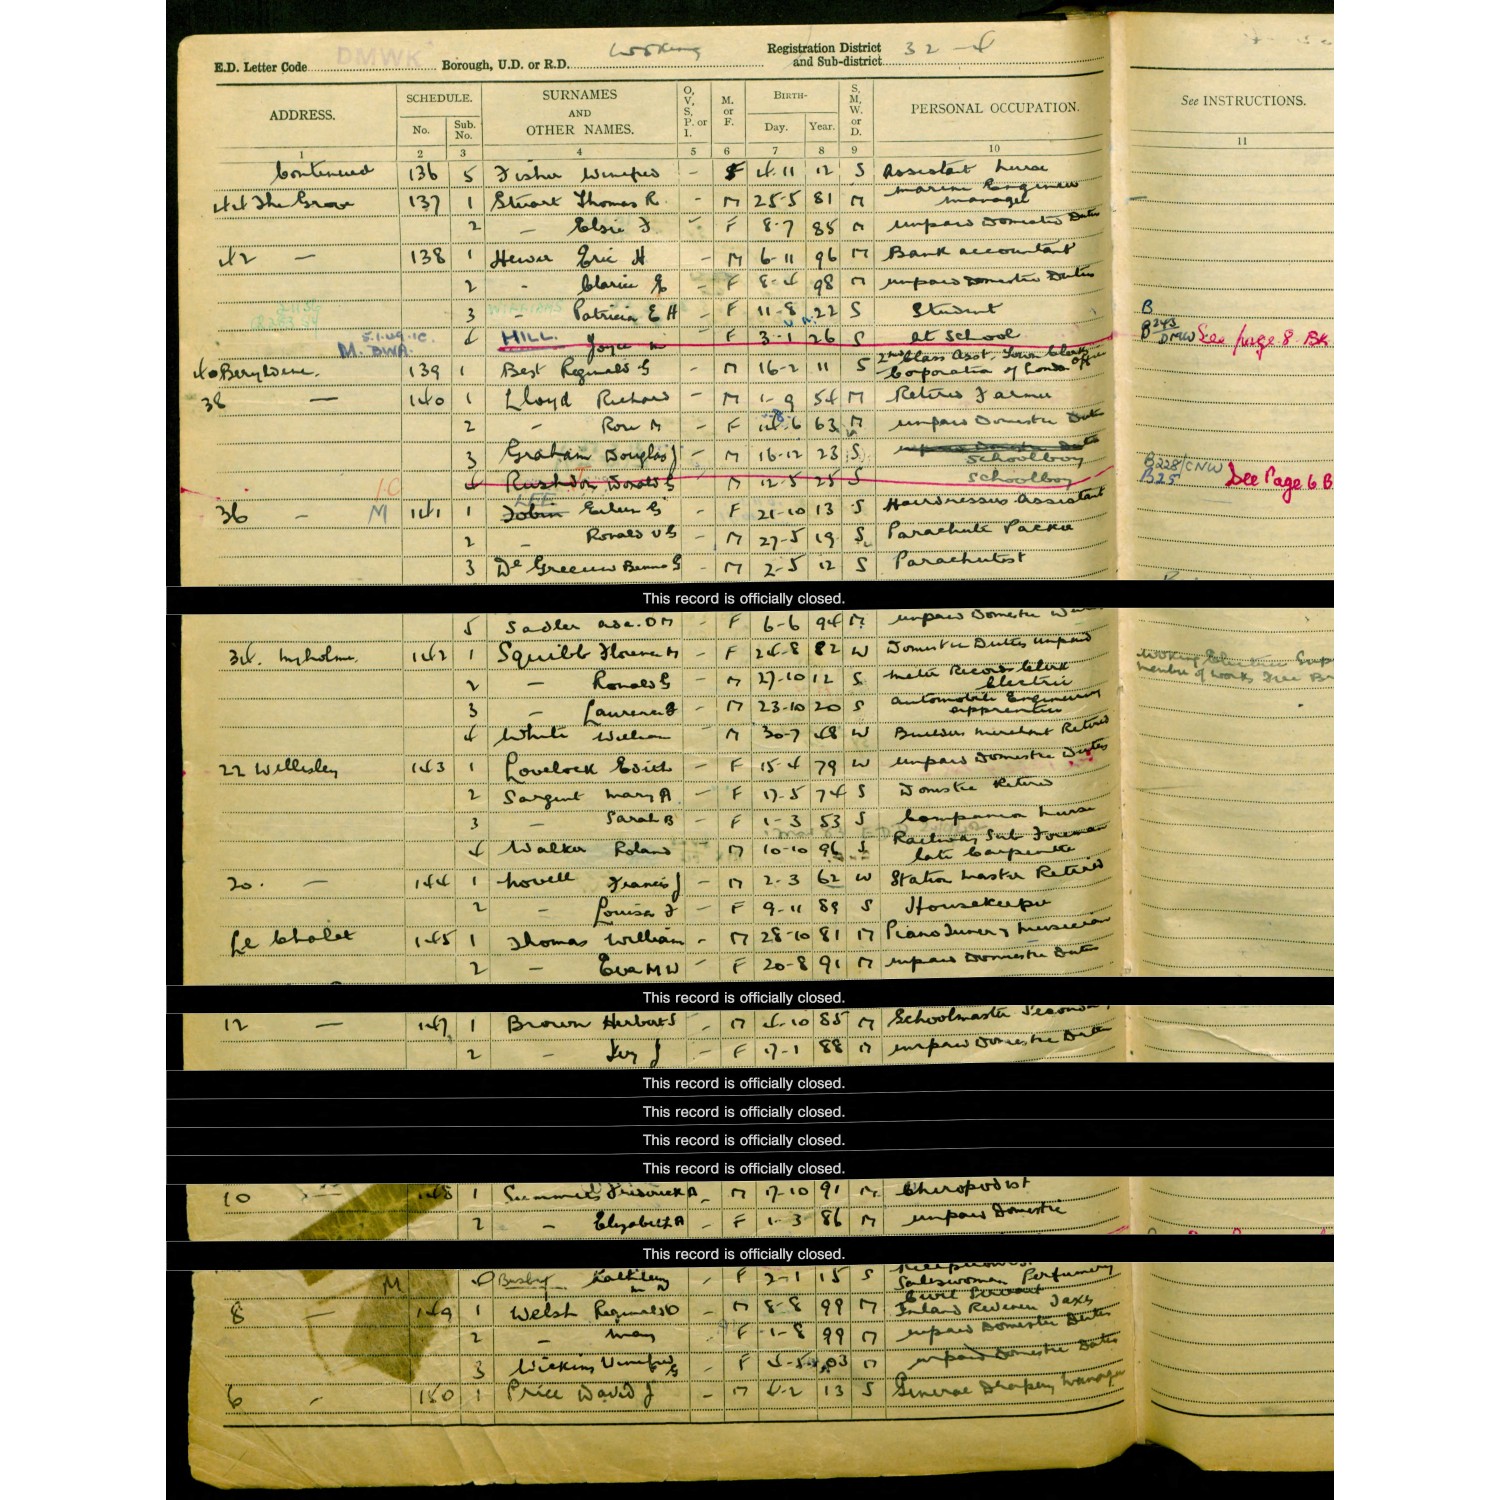 E.D. Letter Code DMWK Borough, U.D. or R.D. Woking Registration District and Sub-district 32-4
ADDRESS. SCHEDULE. No. Sub. No. SURNAMES AND OTHER NAMES. O, V, S, P. or I. M. or F. BIRTH- Day. Year. S, M, W. or D. PERSONAL OCCUPATION. See INSTRUCTIONS.
1 2 3 4 5 6 7 8 9 10 11
Continued 136 5 Fisher Winifred - F 4.11 12 S Assistant Nurse
44 The Grove 137 1 Stuart Thomas R. - M 25-5 81 M Marine Engineer manager
2 - Elsie F - F 8-7 85 M unpaid Domestic Duties
42 - 138 1 Hewer Eric H - M 6-11 96 M Bank accountant
2 - Clarice E - F 8-4 98 M unpaid Domestic Duties
3 - Patricia E H - F 11-8 22 S Student B
5.1.49.1C. M. DWA. 4 HILL. Joyce M F 3-1 26 S At School B 243 DMW See page 8 BK
40 139 1 Best Reginald G - M 16-2 11 S 2nd Class Asst. Town Clerks Office Corporation of London
38 - 140 1 Lloyd Richard - M 1-9 54 M Retired Farmer
2 - Rose M - F 14-6 63 M unpaid Domestic Duties
3 Graham Douglas J - M 16-12 23 S unpaid Domestic Duties Schoolboy
4 Donald G M 12-5 25 S Schoolboy B228/CNW B25 See Page 6 B
36 - 1C M 141 1 Tobin LEE G - F 21-10 13 S Hairdressers Assistant
2 - Ronald V G - M 27-5 19 S Parachute Packer
3 De G - M 2-5 12 S Parachutist
This record is officially closed.
5 Sadler Ada. O M - F 6-6 94 M. unpaid Domestic
34. Inyholme. 142 1 Squibb Florence M - F 24-8 82 W Domestic Duties unpaid
2 - Ronald G - M 27-10 12 S Meter Records Clerk Electric Woking Electric
3 - Laurence - M 23-10 20 S Automobile Engineering apprentice
4 White William M 30-7 48 W Builders Merchant Retired
22 Wellesley 143 1 Lovelock Edith - F 15-4 79 W unpaid Domestic Duties
2 Sargent Mary A - F 17-5 74 S Domestic Retired
3 - Sarah B - F 1-3 53 S Companion Nurse
4 Walker Roland M 10-10 96 S Railway Sub Foreman late Carpenter
20. - 144 1 Lovell Francis J - M 2-3 62 W Station Master Retired
2 - Louisa F - F 9-11 89 S Housekeeper
Le Chalet 145 1 Thomas William - M 28-10 81 M Piano Tuner & Musician
2 - Eva M W - F 20-8 91 M unpaid Domestic Duties
This record is officially closed.
12 - 147 1 Brown Herbert S - M 4-10 85 M Schoolmaster Secondary
2 - Ivy J - F 17-1 88 M unpaid Domestic Duties
This record is officially closed.
This record is officially closed.
This record is officially closed.
This record is officially closed.
10 - 148 1 Frederick A - M 17-10 91 M Chiropodist
2 - Elizabeth A - F 1-3 86 M unpaid Domestic
This record is officially closed.
M 4 Busby Kathleen M - F 2-1 15 S Saleswoman Perfumery
8 - 149 1 Welsh Reginald O - M 8-8 99 M Civil Servant Inland Revenue Taxes
2 - May F 1-8 99 M unpaid Domestic Duties
3 Winifred G - F 4-5 03 M unpaid Domestic Duties
6 - 150 1 Price David J - M 4-2 13 S General Drapery Manager